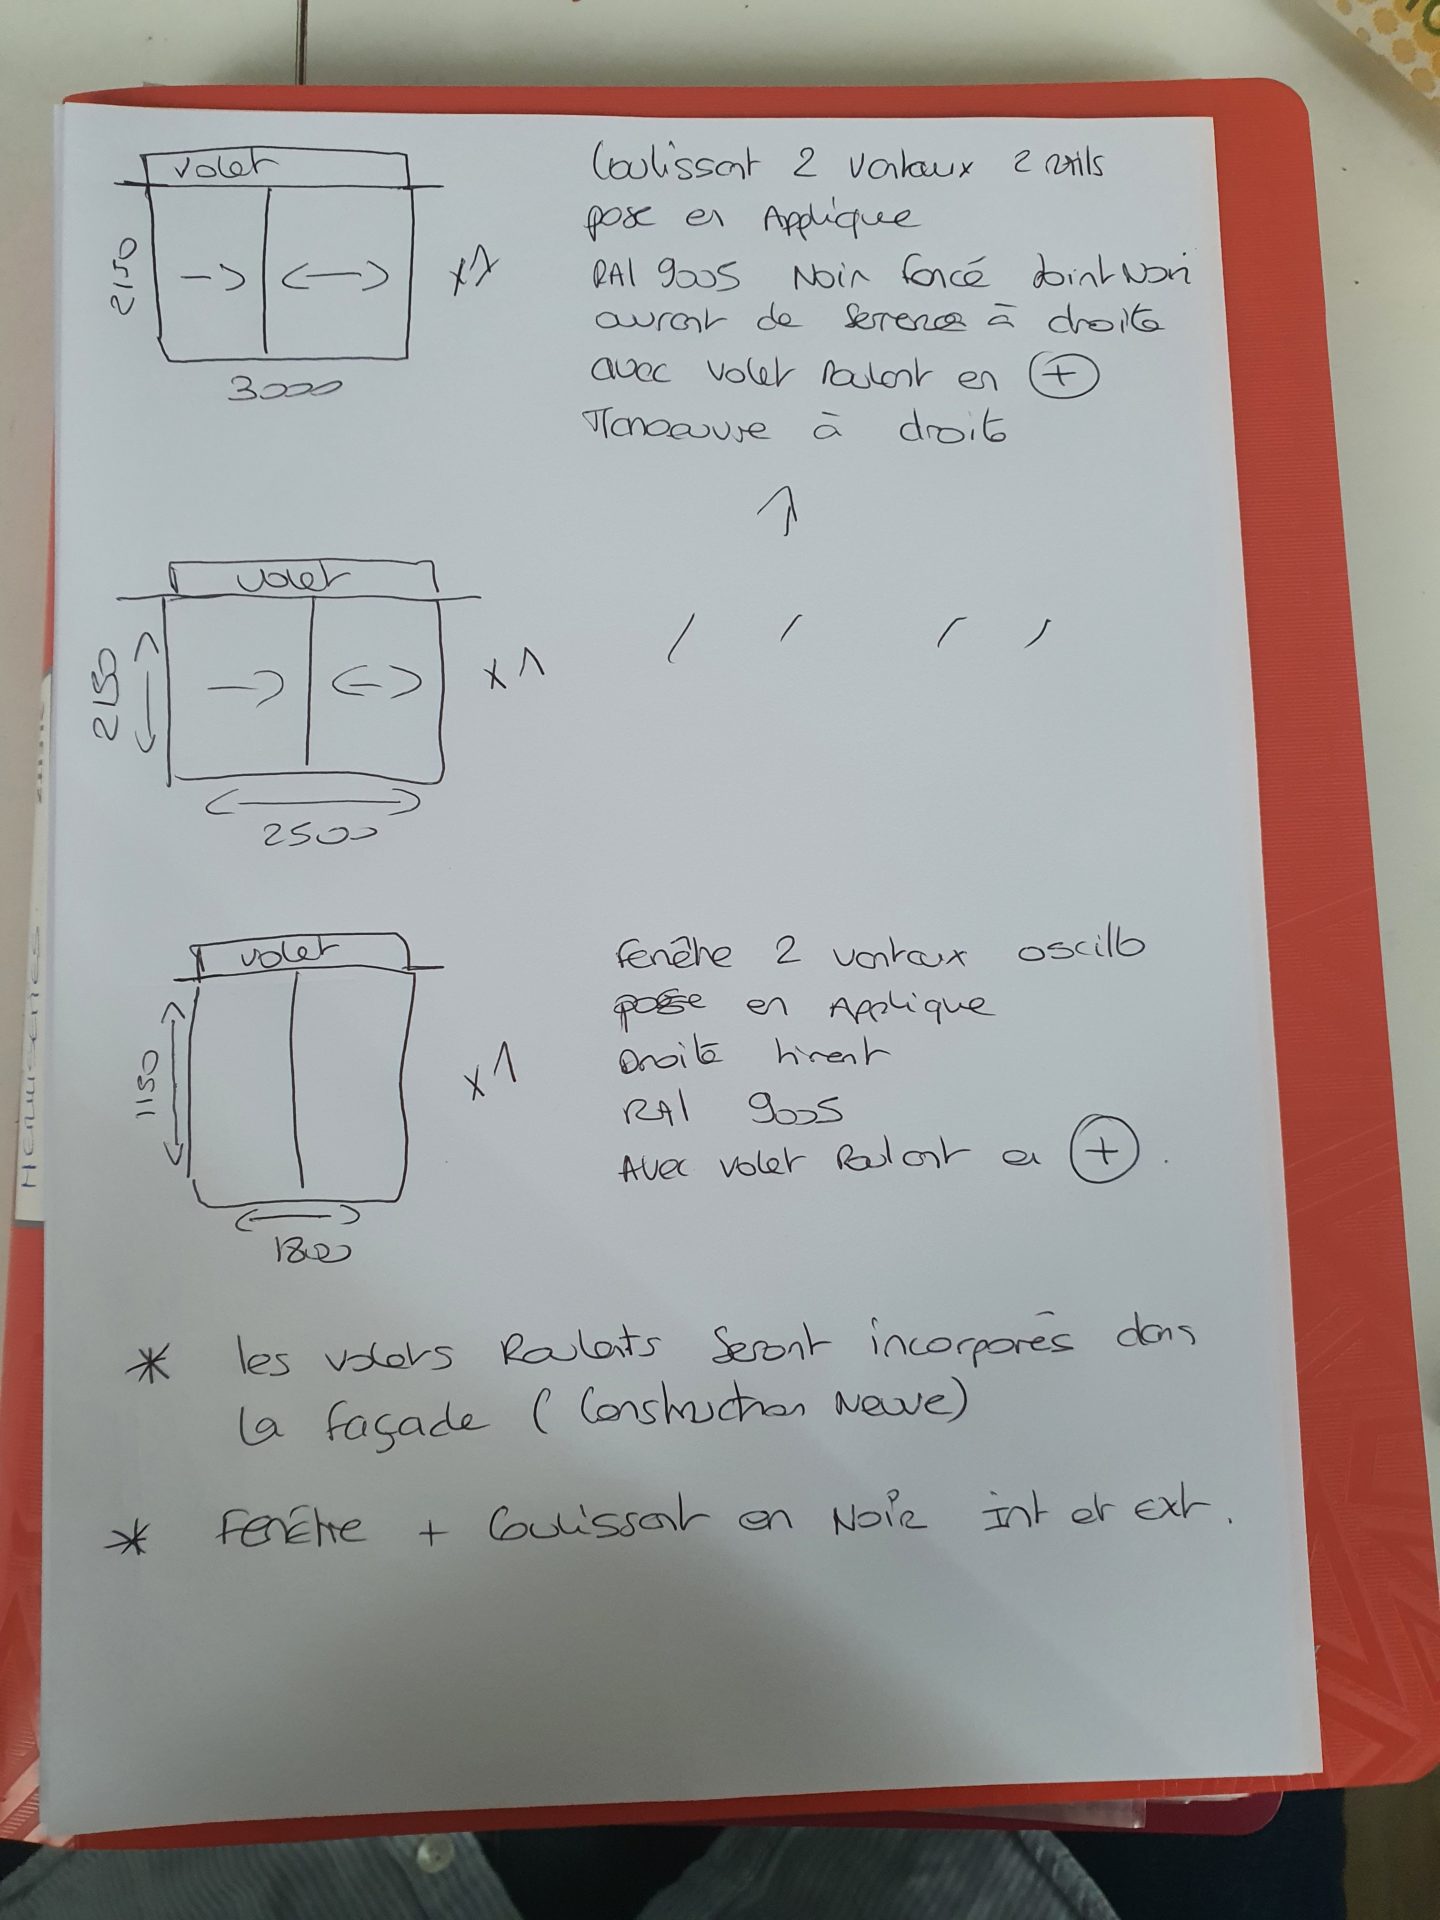 volet
2150
3000
x1
Coulissant 2 vantaux 2 rails
pose en Applique
RAl 9005 Noir foncé Joint Noir
ouvrant de service à droite
avec volet Roulant en +
Manoeuvre à droite
volet
2150
2500
x1
volet
1150
1800
x1
fenêtre 2 vantaux oscillo
pose en Applique
Droite tirant
RAl 9005
Avec volet Roulant en +.
* les volets Roulants seront incorporés dans
la façade (Construction Neuve)
* fenêtre + Coulissant en Noir int et ext.
Menuiseries